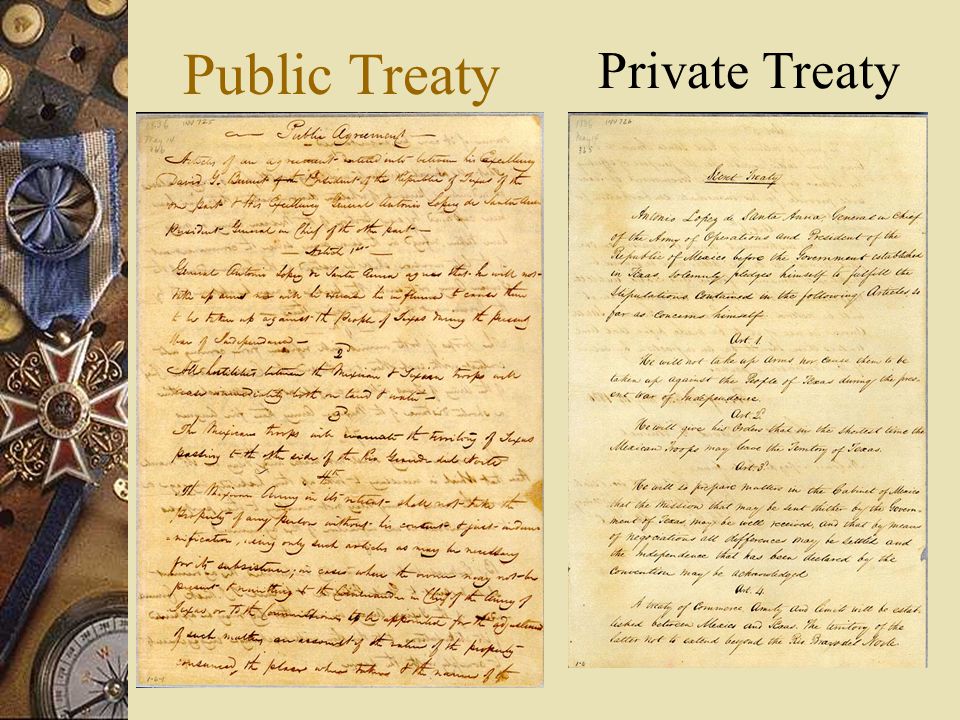 Public Treaty
1836
May 14
366
Public Agreement
Articles of an agreement entered into between his Excellency
David G. Burnet President of the Republic of Texas of the
one part & His Excellency General Antonio Lopez de Santa Anna
President General in Chief of the oth part
Article 1st
General Antonio Lopez de Santa Anna agrees that he will not
take up arms nor will he exercise his influence to cause them
to be taken up against the People of Texas during the present
War of Independence
2
All hostilities between the Mexican & Texian troops will
cease immediately both on land & water
3
The Mexican troops will evacuate the territory of Texas
passing to the other side of the Rio Grande del Norte
4th
The Mexican Army in its retreat shall not take the
property of any person without his consent & just indem-
nification, using only such articles as may be necessary
for its subsistence, in cases where the owner may not be
present & remitting to the Commander in Chief of the Army of
Texas or to the Commissioner to be appointed for the adjustment
of such matters an account of the value of the property
consumed, the place where taken & the name of the
Private Treaty
1836
May 14
365
Secret Treaty
Antonio Lopez de Santa Anna, General in Chief
of the Army of Operations and President of the
Republic of Mexico before the Government established
in Texas, solemnly pledges himself to fulfill the
Stipulations Contained in the following Articles, so
far as concerns himself
Art. 1.
He will not take up arms nor cause them to be
taken up against the People of Texas during the pres-
ent war of Independence.
Art. 2d.
He will give his Orders that in the shortest time the
Mexican Troops may leave the Territory of Texas.
Art. 3d.
He will so prepare matters in the Cabinet of Mexico
that the Mission that may be sent thither by the Govern-
ment of Texas may be well received, and that by means
of negotiations all differences may be settled and
the Independence that has been declared by the
Convention may be acknowledged
Art. 4.
A treaty of Commerce Amity and limits will be estab-
lished between Mexico and Texas. The territory of the
latter not to extend beyond the Rio Bravo del Norte